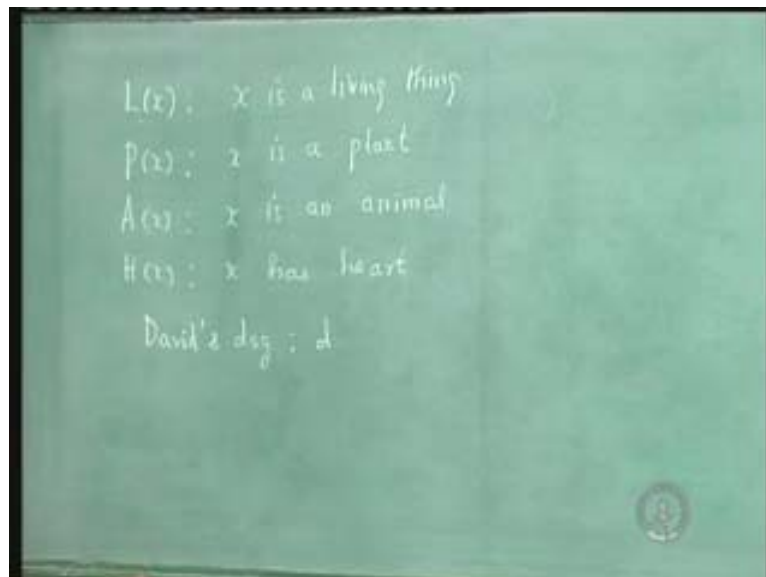 L(x) : x is a living thing
P(x) : x is a plant
A(x) : x is an animal
H(x) : x has heart
David's dog : d